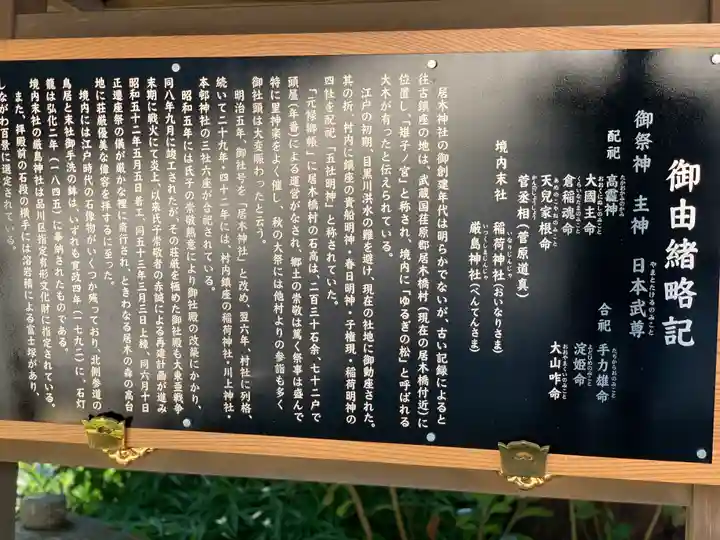 御由緒略記
御祭神　主神　日本武尊
やまとたけるのみこと
配祀　高靇神
たかおかみのかみ
大國主命
おおくにぬしのみこと
倉稲魂命
天児家根命
あめのこやねのみこと
菅丞相（菅原道真）
かんしょうじょう
合祀　手力雄命
たぢからおのみこと
淀姫命
よどひめのみこと
大山咋命
おおやまくいのみこと
境内末社　稲荷神社（おいなりさま）
いなりじんじゃ
厳島神社（べんてんさま）
いつくしまじんじゃ
居木神社の御創建年代は明らかでないが、古い記録によると
往古鎮座の地は、武蔵国荏原郡居木橋村（現在の居木橋付近）に
位置し、「雉子ノ宮」と称され、境内に「ゆるぎの松」と呼ばれる
大木が有ったと伝えられている。
江戸の初期、目黒川洪水の難を避け、現在の社地に御動座された。
其の折、村内に鎮座の貴船明神・春日明神・子権現・稲荷明神の
四社を配祀し「五社明神」と称されていた。
「元禄郷帳」に居木橋村の石高は、二百三十石余、七十二戸で
頭屋（年番）による運営がなされ、郷土の崇敬は篤く祭事は盛んで
特に里神楽をよく催し、秋の大祭には他村よりの参詣も多く
御社頭は大変賑わったと云う。
明治五年、御社号を「居木神社」と改め、翌六年、村社に列格、
続いて二十九年・四十二年には、村内鎮座の稲荷神社・川上神社・
本邨神社の三社六座が合祀されている。
昭和五年には氏子の崇敬熱意により御社殿の改築にかかり、
同八年九月に竣工されたが、その荘厳を極めた御社殿も大東亜戦争
末期に戦火にて炎上、以来氏子崇敬者の赤誠による再建計画が進み
昭和五十二年五月五日着工、同五十三年三月三日上棟、同六月十日
正遷座祭の儀が厳かな裡に斎行され、ときわなる居木の森の高台
地に荘厳優美な偉容を拝するに至った。
境内には江戸時代の石像物がいくつか残っており、北側参道の
鳥居と末社御手洗の鉢は、いずれも寛政四年（一七九二）に、石灯
籠は弘化二年（一八四五）に奉納されたものである。
境内末社の厳島神社は品川区指定有形文化財に指定されている。
また、拝殿前の石段の横手には溶岩積による富士塚があり、
しながわ百景に選定されている。